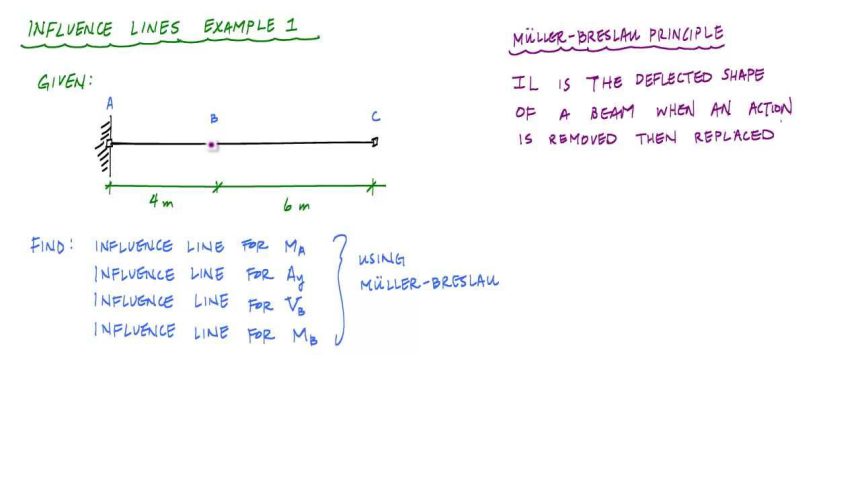 INFLUENCE LINES EXAMPLE 1
MÜLLER-BRESLAU PRINCIPLE
IL IS THE DEFLECTED SHAPE
OF A BEAM WHEN AN ACTION
IS REMOVED THEN REPLACED
GIVEN:
A
B
C
4m
6m
FIND: INFLUENCE LINE FOR MA
INFLUENCE LINE FOR Ay
INFLUENCE LINE FOR VB
INFLUENCE LINE FOR MB
USING
MÜLLER-BRESLAU